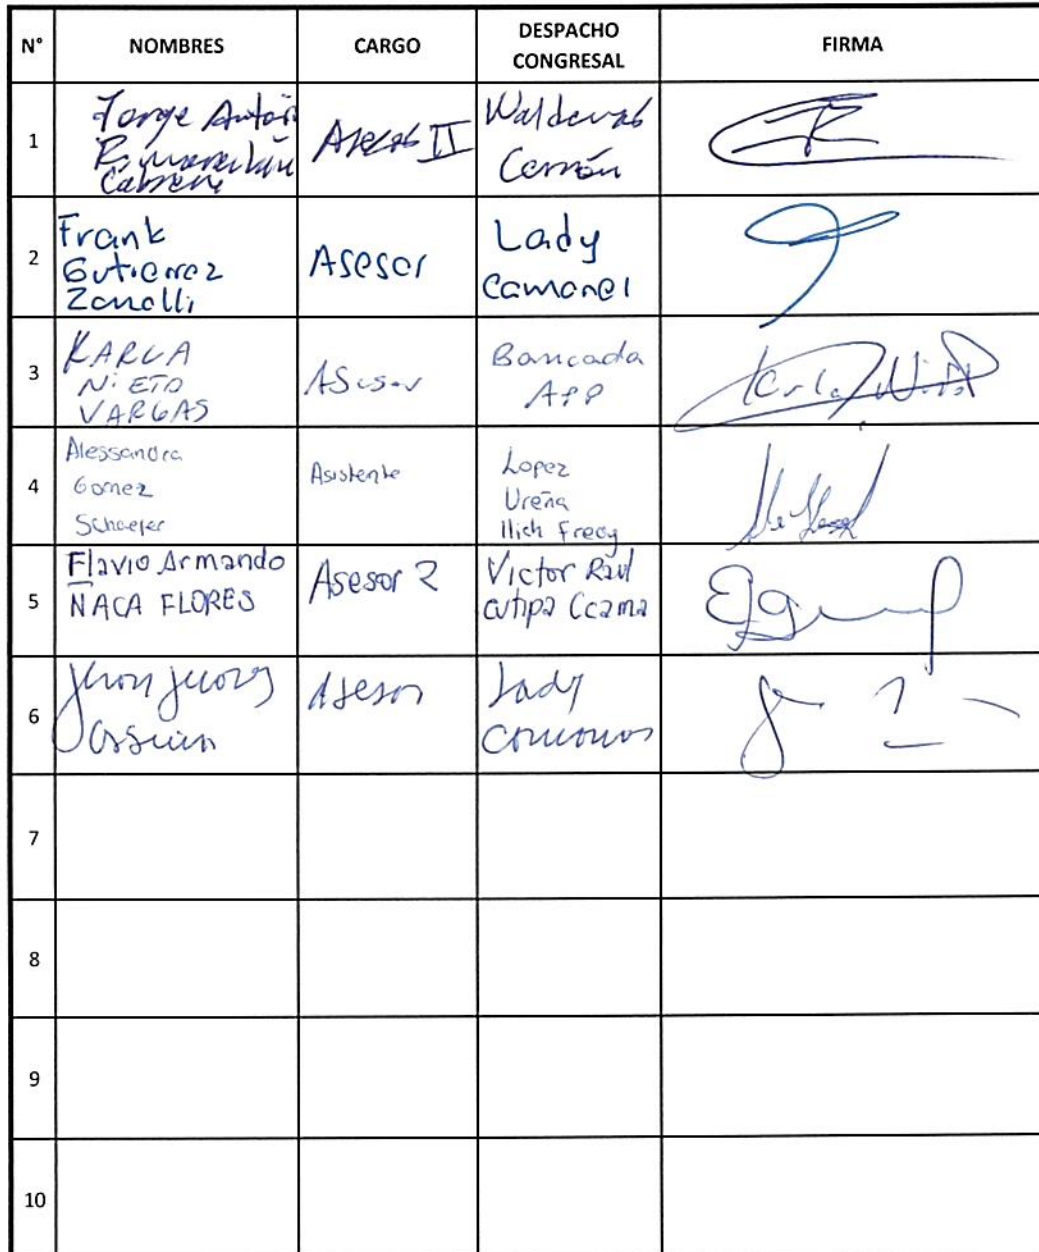 N° NOMBRES CARGO DESPACHO CONGRESAL FIRMA
1 Jorge Antón Cabrera II Waldemar Cerrón
2 Frank Gutierrez Zanelli Asesor Lady Camones
3 KARLA NIETO VARGAS Asesor Bancada APP
4 Alessandra Gomez Schaefer Asistente Lopez Ureña Ilich Fredy
5 Flavio Armando ÑACA FLORES Asesor 2 Victor Raúl cutipa Ccama
6 Asesor Lady
7
8
9
10